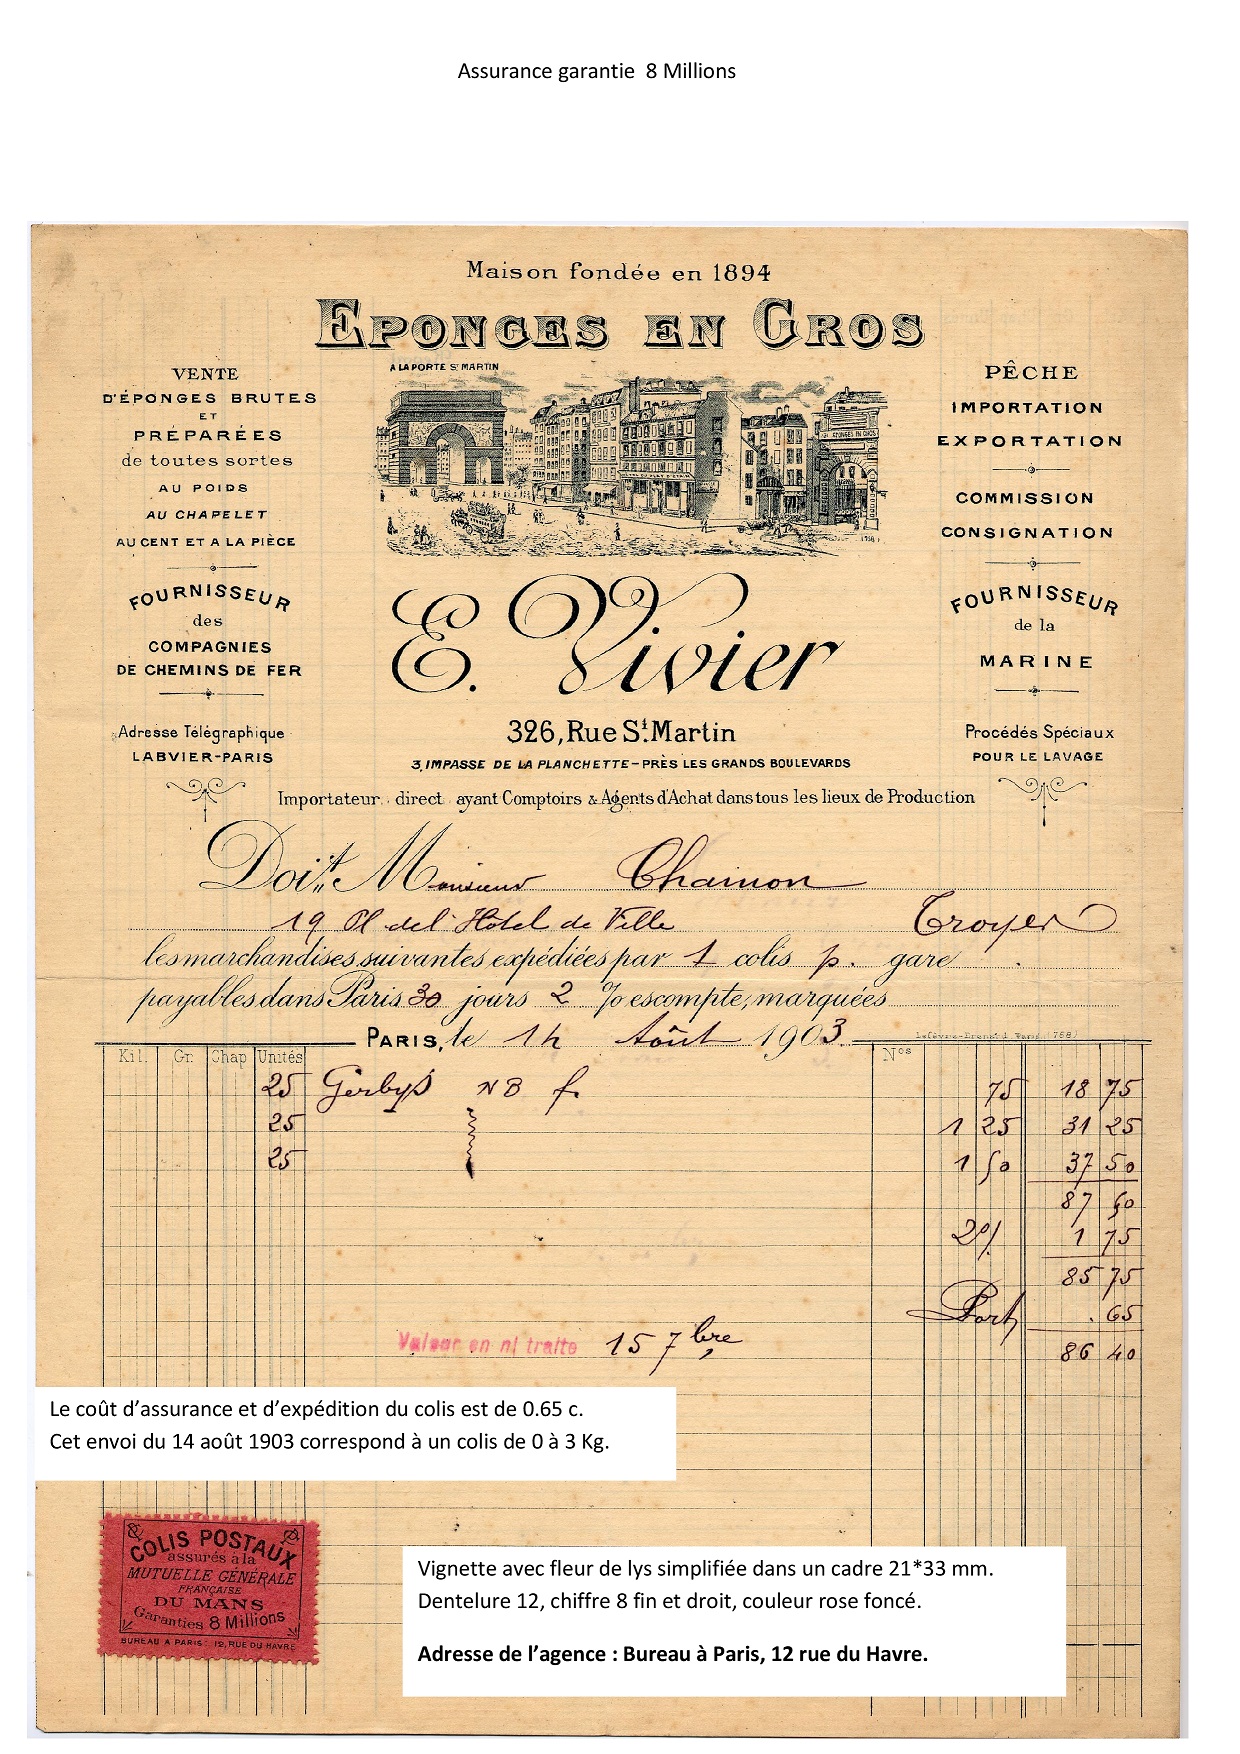 Assurance garantie 8 Millions
Maison fondée en 1894
EPONGES EN GROS
A LA PORTE St MARTIN
VENTE
D'ÉPONGES BRUTES
ET
PRÉPARÉES
de toutes sortes
AU POIDS
AU CHAPELET
AU CENT ET A LA PIÈCE
FOURNISSEUR
des
COMPAGNIES
DE CHEMINS DE FER
Adresse Télégraphique
LABVIER-PARIS
EPONGES EN GROS
PÊCHE
IMPORTATION
EXPORTATION
COMMISSION
CONSIGNATION
FOURNISSEUR
de la
MARINE
Procédés Spéciaux
POUR LE LAVAGE
E. Vivier
326, Rue St. Martin
3, IMPASSE DE LA PLANCHETTE - PRÈS LES GRANDS BOULEVARDS
Importateur direct ayant Comptoirs & Agents d'Achat dans tous les lieux de Production
Doit Monsieur Chamon
19 Pl de l'Hôtel de Ville Troyes
les marchandises suivantes expédiées par 1 colis p. gare
payables dans Paris 30 jours 2 % escompte, marquées
PARIS, le 14 Août 1903
Kil. Gr. Chap Unités Nos
25 Gerbys NB f. 75 18 75
25 1 25 31 25
25 1 50 37 50
87 50
2% 1 75
85 75
Port . 65
Valeur en n/ traite 15 7bre
86 40
Le coût d'assurance et d'expédition du colis est de 0.65 c.
Cet envoi du 14 août 1903 correspond à un colis de 0 à 3 Kg.
COLIS POSTAUX
assurés à la
MUTUELLE GÉNÉRALE
FRANÇAISE
DU MANS
Garanties 8 Millions
BUREAU A PARIS: 12, RUE DU HAVRE
Vignette avec fleur de lys simplifiée dans un cadre 21*33 mm.
Dentelure 12, chiffre 8 fin et droit, couleur rose foncé.
Adresse de l'agence : Bureau à Paris, 12 rue du Havre.